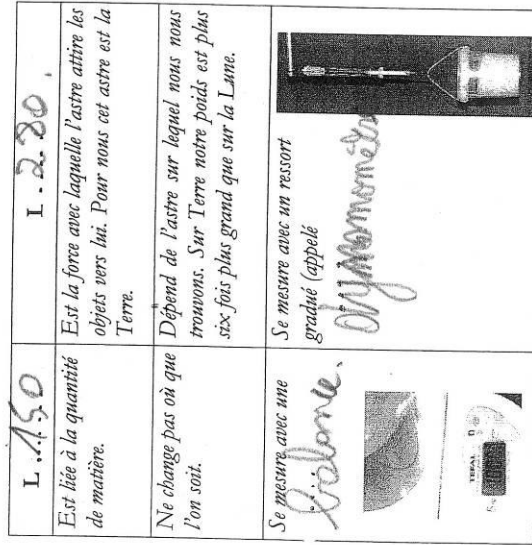 L...150
L.2.80.
Est liée à la quantité
de matière.
Est la force avec laquelle l'astre attire les
objets vers lui. Pour nous cet astre est la
Terre.
Ne change pas où que
l'on soit.
Dépend de l'astre sur lequel nous nous
trouvons. Sur Terre notre poids est plus
six fois plus grand que sur la Lune.
Se mesure avec une
balance.
TEFAL
Se mesure avec un ressort
gradué (appelé
dynamomètre